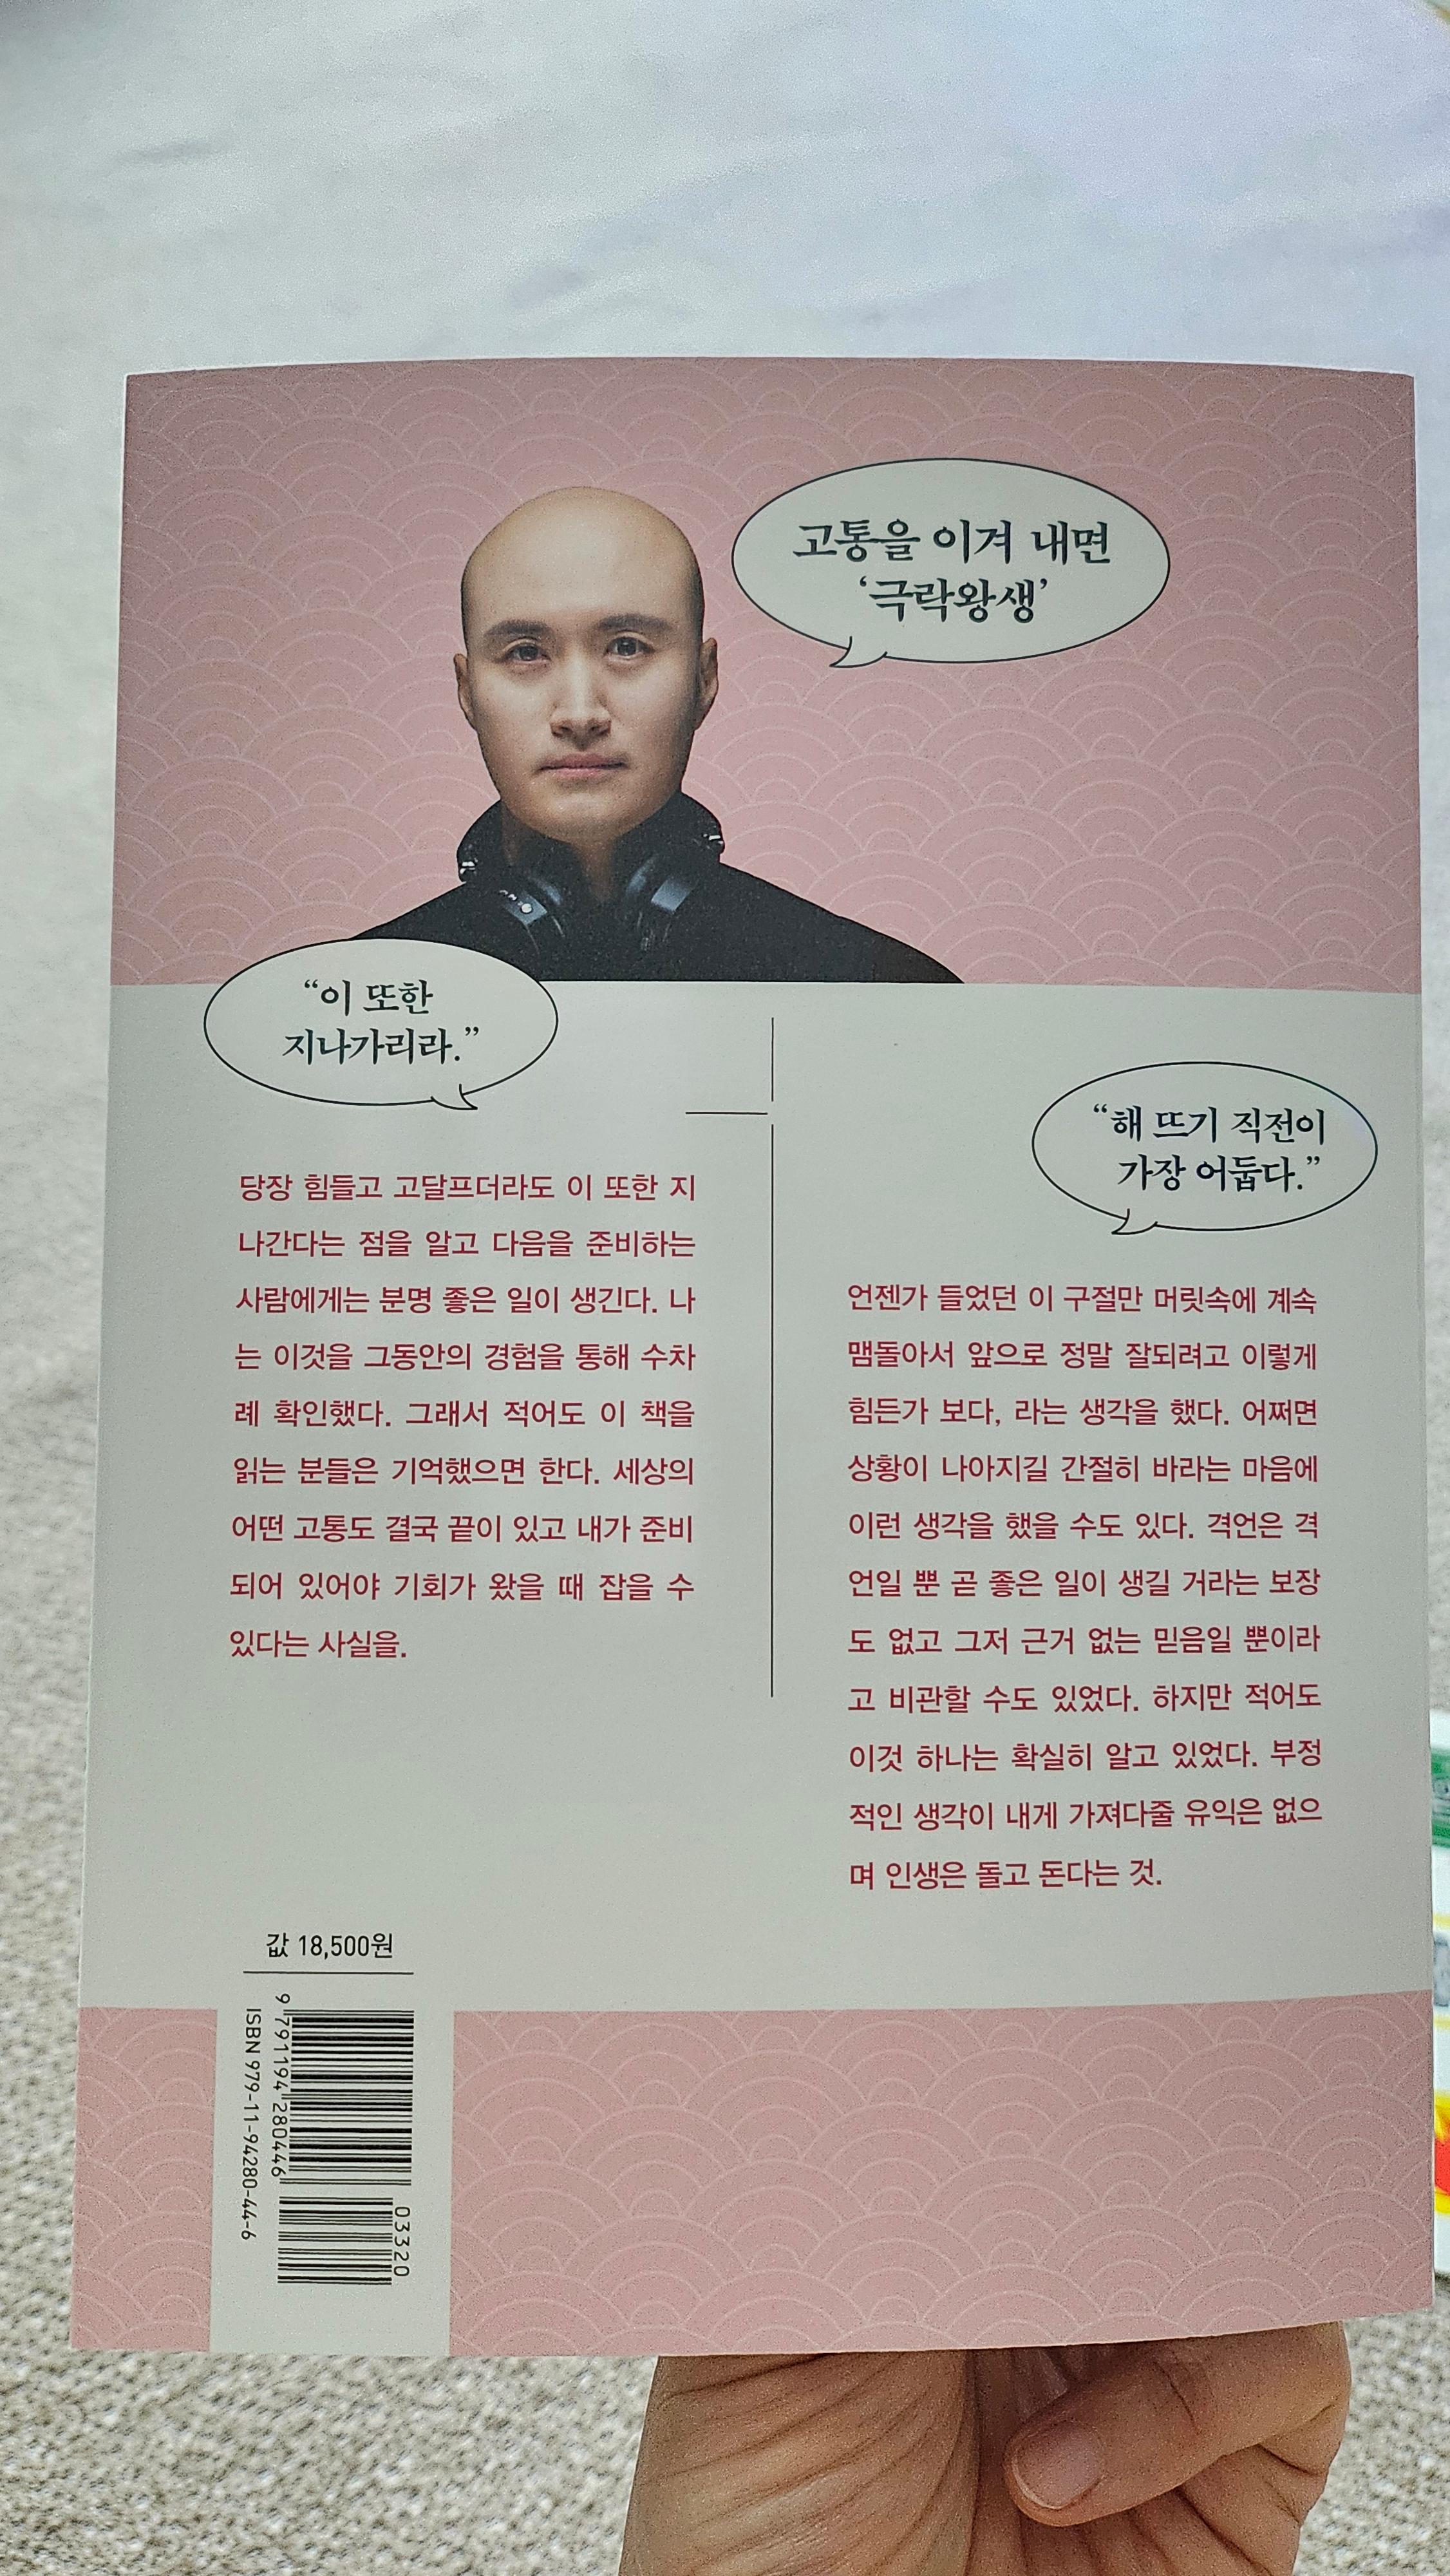 고통을 이겨 내면
‘극락왕생’
“이 또한
지나가리라.”
당장 힘들고 고달프더라도 이 또한 지
나간다는 점을 알고 다음을 준비하는
사람에게는 분명 좋은 일이 생긴다. 나
는 이것을 그동안의 경험을 통해 수차
례 확인했다. 그래서 적어도 이 책을
읽는 분들은 기억했으면 한다. 세상의
어떤 고통도 결국 끝이 있고 내가 준비
되어 있어야 기회가 왔을 때 잡을 수
있다는 사실을.
“해 뜨기 직전이
가장 어둡다.”
언젠가 들었던 이 구절만 머릿속에 계속
맴돌아서 앞으로 정말 잘되려고 이렇게
힘든가 보다, 라는 생각을 했다. 어쩌면
상황이 나아지길 간절히 바라는 마음에
이런 생각을 했을 수도 있다. 격언은 격
언일 뿐 곧 좋은 일이 생길 거라는 보장
도 없고 그저 근거 없는 믿음일 뿐이라
고 비관할 수도 있었다. 하지만 적어도
이것 하나는 확실히 알고 있었다. 부정
적인 생각이 내게 가져다줄 유익은 없으
며 인생은 돌고 돈다는 것.
값 18,500원
9 791194 280446
03320
ISBN 979-11-94280-44-6